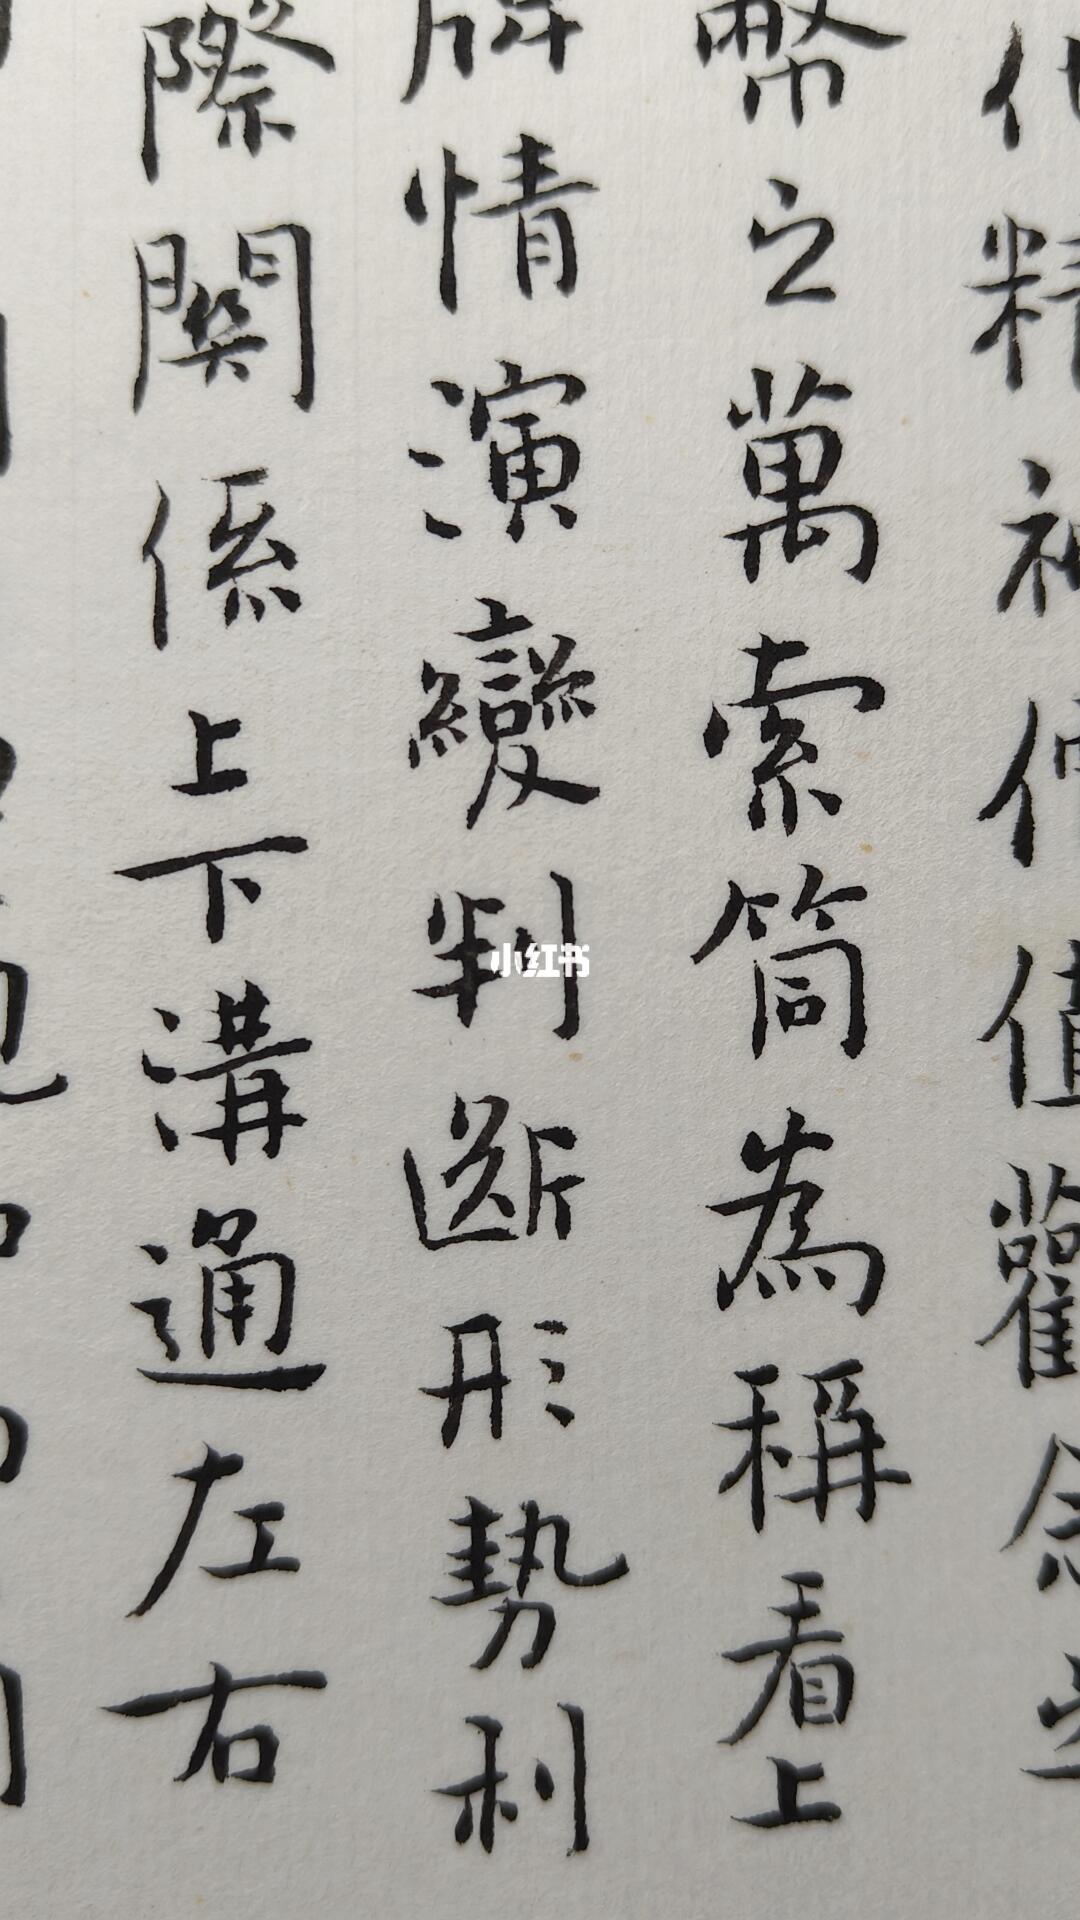 精神價值觀念
幣之萬索筒為稱看上
牌情演變判斷形勢利
際關係上下溝通左右
小红书